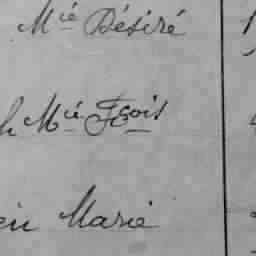 Mie Désiré
h Mie Fçois
ien Marie